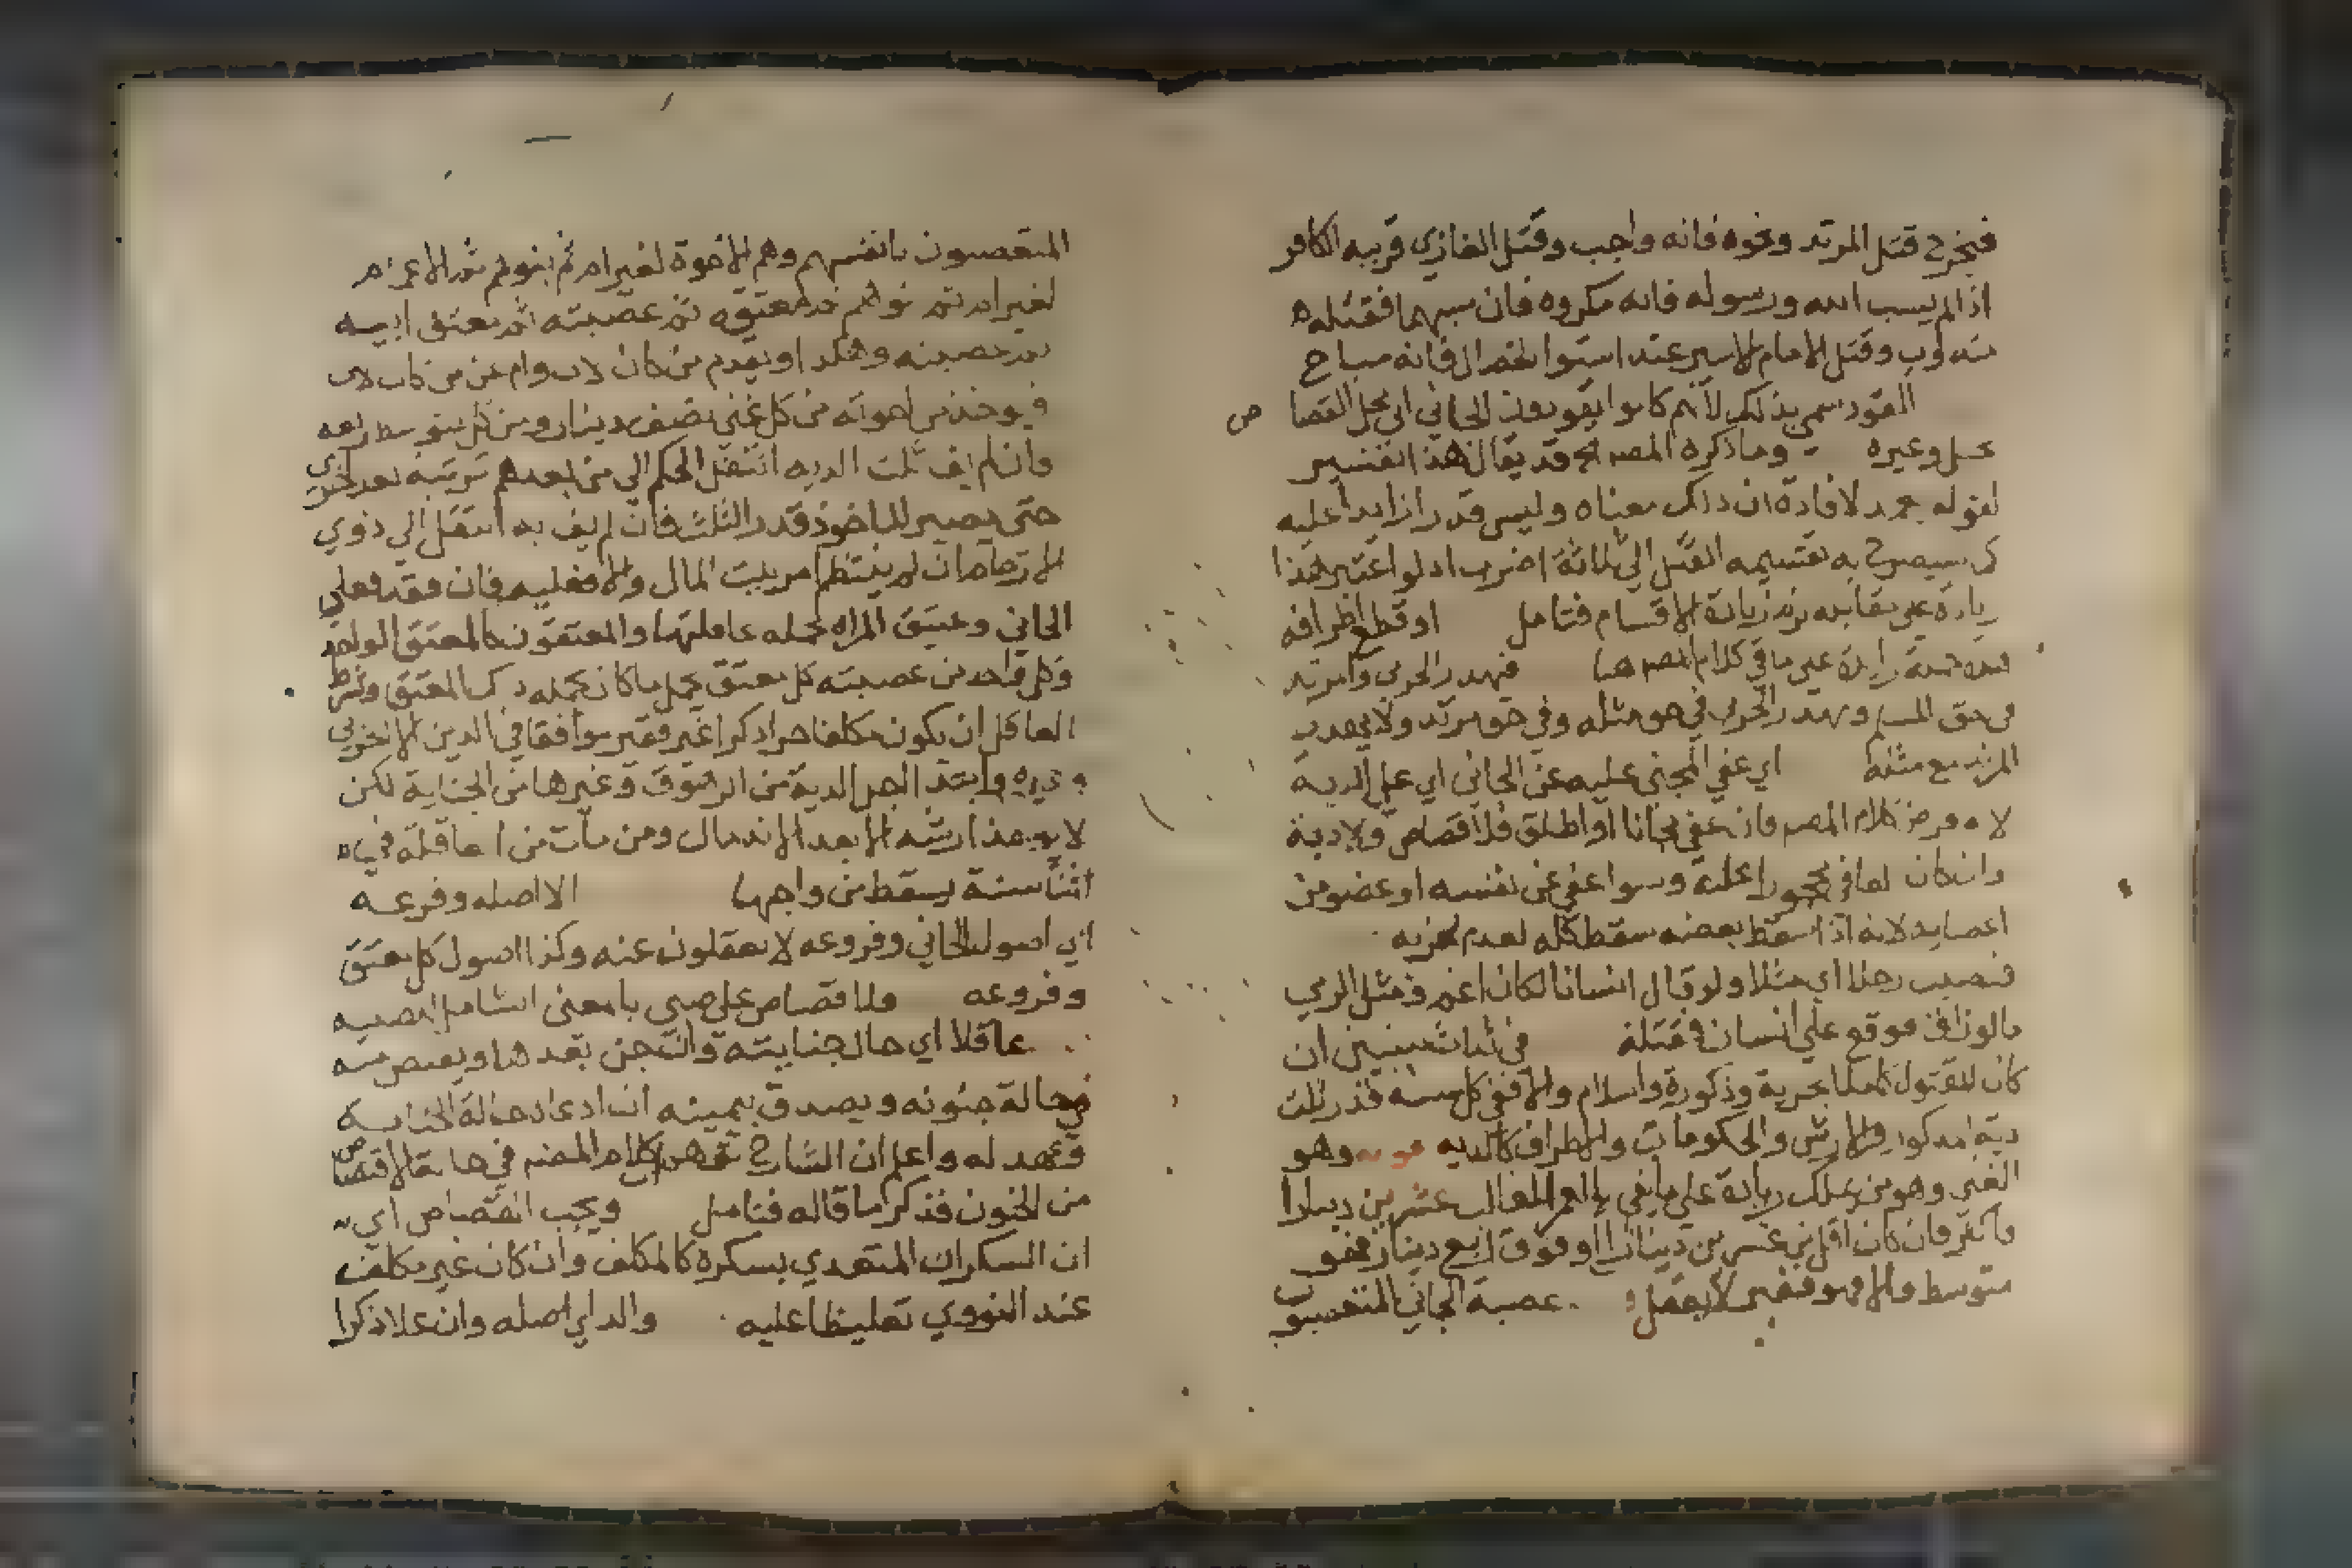 فيخرج قتل المرتد ونحوه فانه واجب وقتل الغازي قريبه الكافر
اذا لم يسب الله ورسوله فانه مكروه فان سبهما فقتله
مندوب وقتل الامام الاسير عند استوا الخصال فانه مباح
القود سمي بذلك لأنهم كانوا يقودون الجاني الى محل القصاص
وغيره وما ذكره المصـ قد يقال هذا تفسير
لقوله عمد لافادة ان ذلك معناه وليس قدرا زايدا عليه
سيصرح به تقسيمه القتل الي ثلاثة اضرب اذ لو اعتبر هذا
زيادة الاقسام فتامل او قطع اطرافه
في كلام المصـ هنا فيهدر الحربي والمرتد
في حق المسلم ويهدر الحربي في حق مثله وفي حق مرتد ولا يهدر
المرتد مع مثله اي عفي المجني عليه عن الجاني اي على الدية
كلام المصـ فان عفي مجانا او اطلق فلا قصاص ولا دية
وان كان العافي محجورا عليه وسوا عفي عن نفسه او عضو من
اعضايه لانه اذا سقط بعضه سقط كله لعدم تجزيه
فيصيب رجلا اي مثلا ولو قال انسانا لكان اعم ومثل الرمي
مالو زلق فوقع علي انسان فقتله في ثلاث سنين ان
كان المقتول كاملا بحرية وذكورة واسلام والا ففي كل سنة قدر ثلث
دية والارش والحكومات والاطراف كالدية وهو
الغني وهو من يملك زيادة علي ما يفي بالعمر الغالب عشرين دينارا
فاكثر فان كان اقل من عشرين دينارا او فوق ربع دينار فهو
متوسط والا فهو فقير لا يعقل عصبة الجاني المتعصبون
المتعصبون بانفسهم وهم الاخوة لغير ام ثم بنوهم ثم الاعمام
لغير ام ثم بنوهم ثم معتقه ثم عصبته ثم معتق ابيه
ثم عصبته وهكذا ويقدم من كان لاب وام على من كان لاب
فيوخذ من اخوته من كل غني نصف دينار ومن كل متوسط ربعه
فان لم يف ثلث الدية انتقل الحكم الي من بعدهم
حتى يصير الماخوذ قدر الثلث فان لم يف به انتقل الي ذوي
الارحام ان لم ينتظم امر بيت المال والا فعليه فان فقد فعلي
الجاني وعتيق المراة تحمله عاقلتها والمعتقون كالمعتق الواحد
وكل واحد من عصبته كل معتق يحمل ما كان يحمله ذلك المعتق وشرط
العاقل ان يكون مكلفا حرا ذكرا غير فقير موافقا في الدين
وابتدا اجل الدية من الزهوق وغيرها من الجناية لكن
لا يوخذ ارشه الا بعد الاندمال ومن مات من العاقلة في
اثنا سنة يسقط من واجبها الا اصله وفرعه
اي اصول الجاني وفروعه لا يعقلون عنه وكذا اصول كل معتق
وفروعه ولا قصاص علي صبي بالمعنى الشامل للصبية
عاقلا اي حال جنايته وان جن بعدها ويقتص منه
في حالة جنونه ويصدق بيمينه ان ادعا حالة الجناية
وعهد له واعلم ان الشارح كلام المصنف في
من الجنون فذكر ما قاله فتامل ويجب القصاص اي
ان السكران المتعدي بسكره كالمكلف وان كان غير مكلف
عند النووي تغليظا عليه والد اي اصله وان علا ذكرا